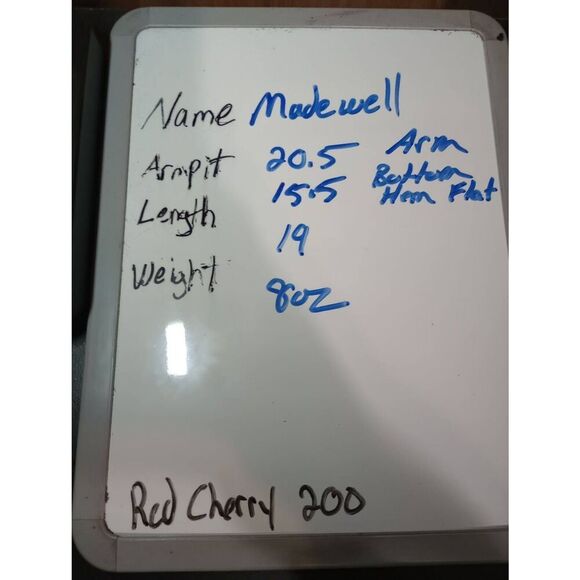 Name Madewell
Armpit 20.5 Arm
15.5 Bottom
Hem Flat
Length 19
Weight 8oz
Red Cherry 200